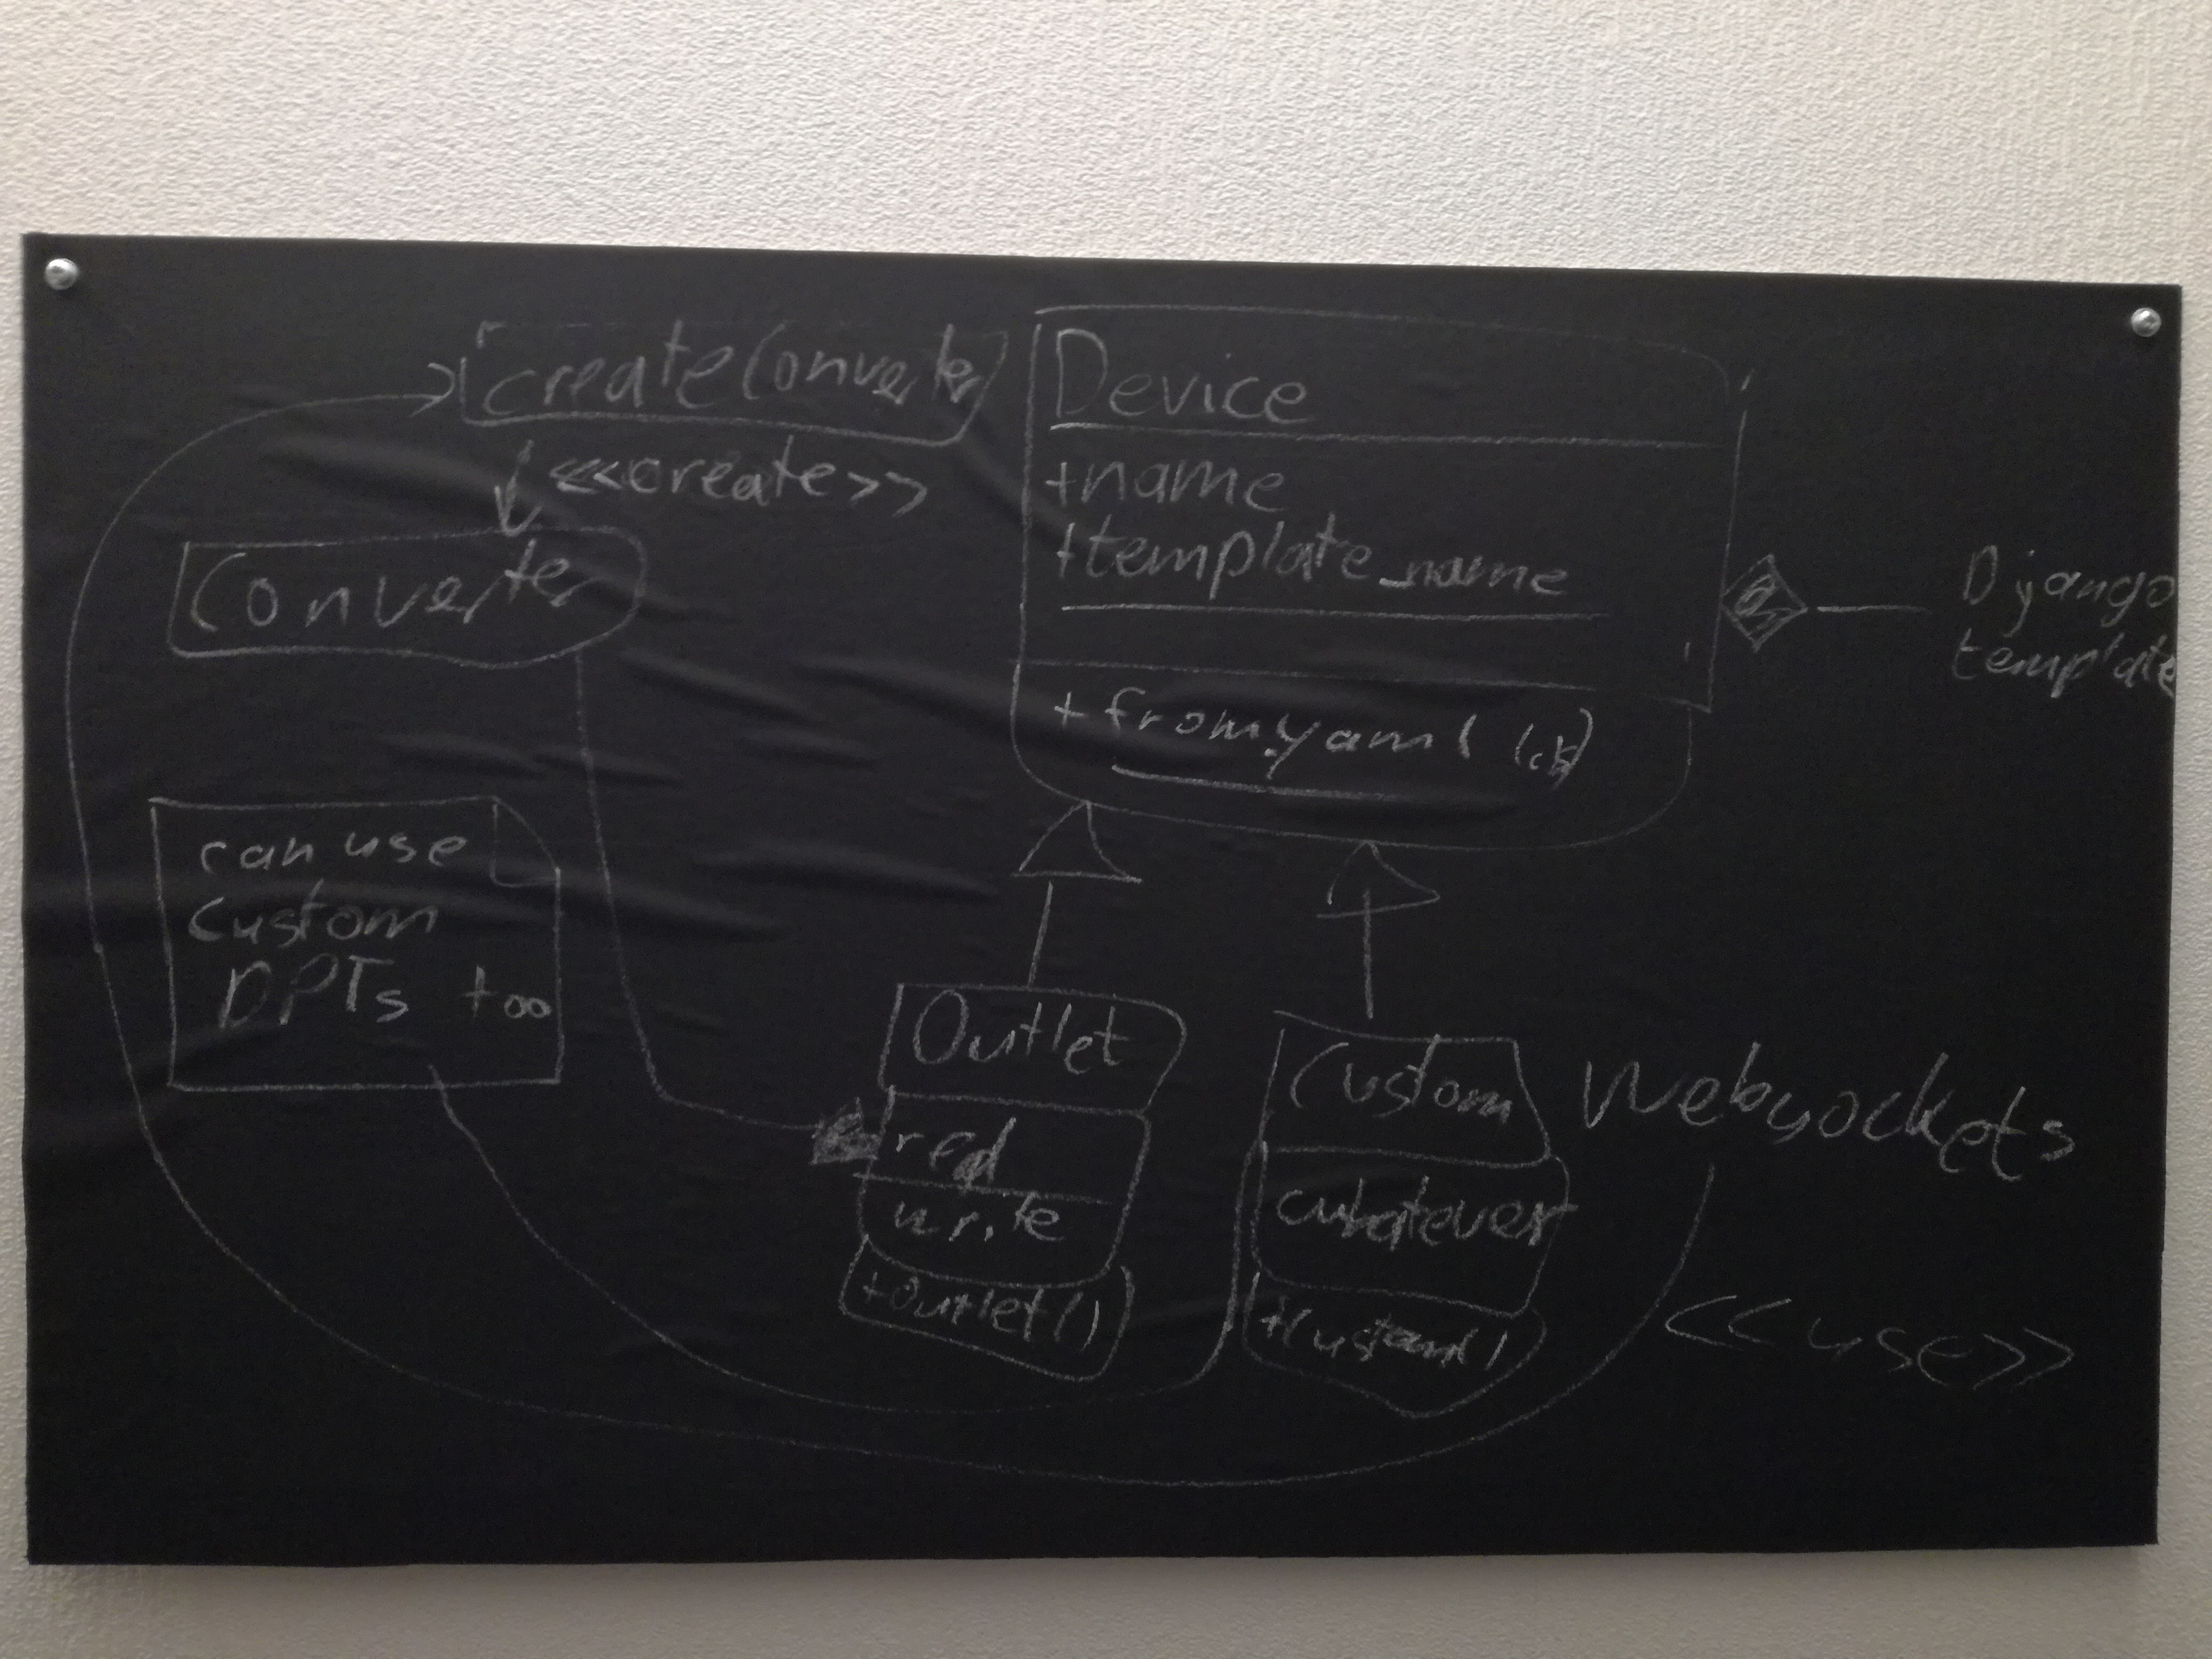 createConverter
<<create>>
Converter
Device
+name
+template_name
+ from_yaml
Django
template
can use
custom
DPTs too
Outlet
write
+Outlet()
Custom
whatever
+Custom()
Websockets
<<use>>